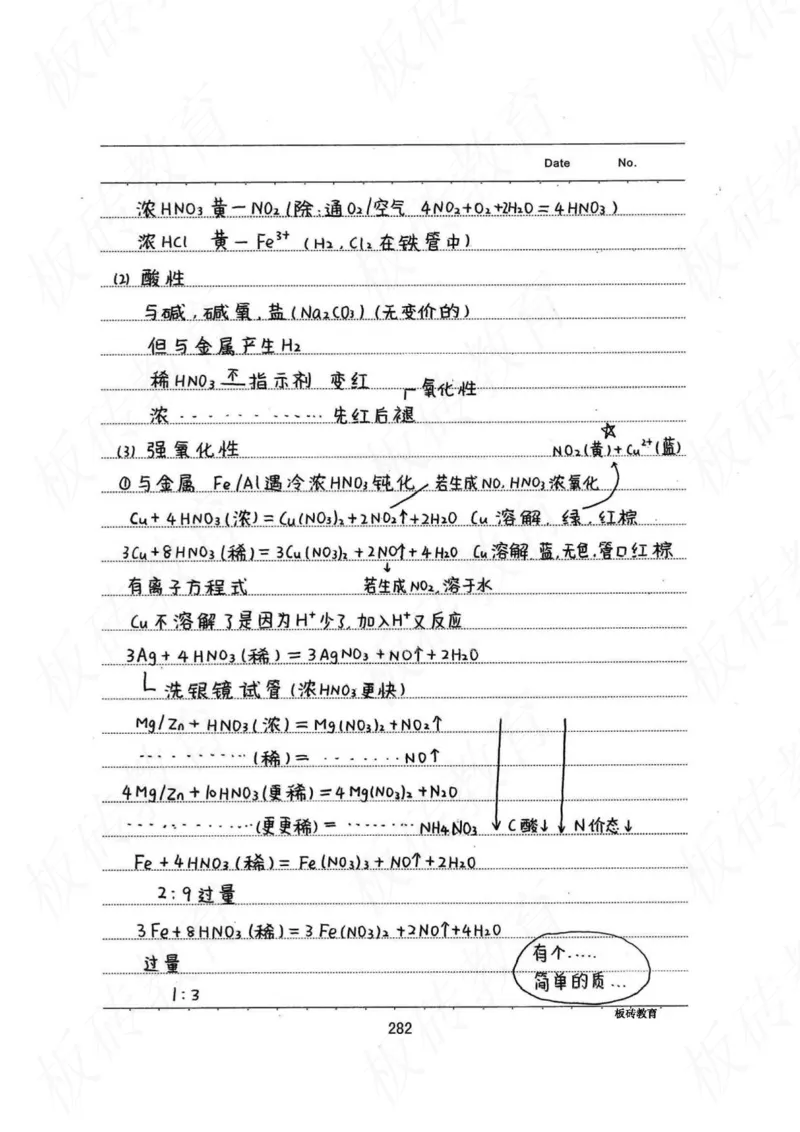 Date No.
浓HNO₃ 黄—NO₂(除:通O₂/空气 4NO₂+O₂+2H₂O=4HNO₃)
浓HCl 黄—Fe³⁺ (H₂,Cl₂在铁管中)
(2) 酸性
与碱,碱氧,盐(Na₂CO₃)(无变价的)
但与金属产生H₂
稀HNO₃ 不 指示剂 变红 氧化性
浓 ············ 先红后褪
(3) 强氧化性 NO₂(黄)+Cu²⁺(蓝) ☆
①与金属 Fe/Al遇冷浓HNO₃钝化 若生成NO,HNO₃浓氧化
Cu+4HNO₃(浓)=Cu(NO₃)₂+2NO₂↑+2H₂O Cu溶解,绿,红棕
3Cu+8HNO₃(稀)=3Cu(NO₃)₂+2NO↑+4H₂O Cu溶解 蓝,无色,管口红棕
有离子方程式 ↓若生成NO₂,溶于水
Cu不溶解了是因为H⁺少了,加入H⁺又反应
3Ag+4HNO₃(稀)=3AgNO₃+NO↑+2H₂O
洗银镜试管(浓HNO₃更快)
Mg/Zn+HNO₃(浓)=Mg(NO₃)₂+NO₂↑
············(稀)=·······NO↑
4Mg/Zn+10HNO₃(更稀)=4Mg(NO₃)₂+N₂O
············(更更稀)=········NH₄NO₃ ↓C酸↓ ↓N价态↓
Fe+4HNO₃(稀)=Fe(NO₃)₃+NO↑+2H₂O
2:9过量
3Fe+8HNO₃(稀)=3Fe(NO₃)₂+2NO↑+4H₂O
过量
有个·····
简单的质···
1:3
板砖教育
282